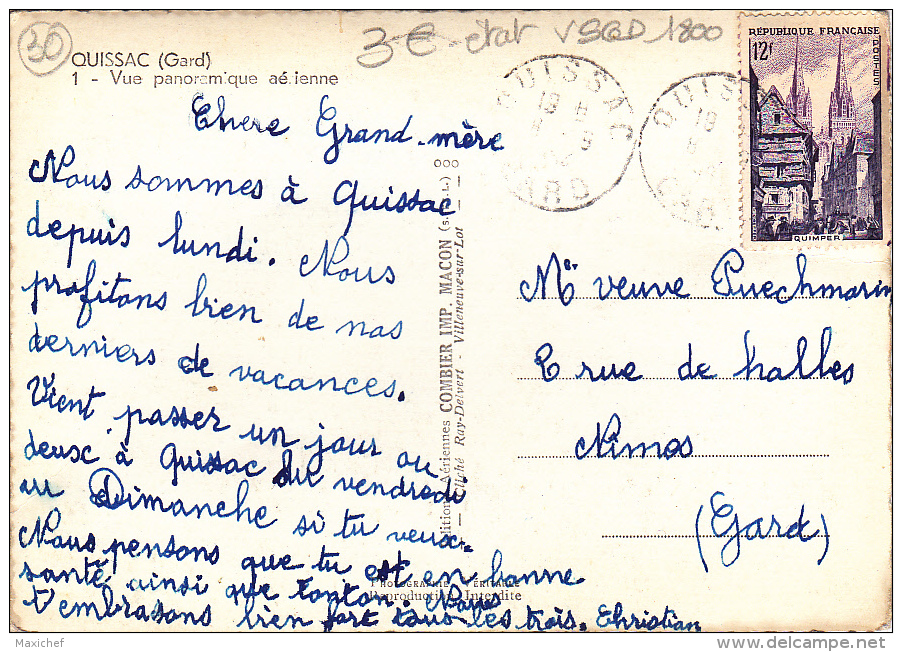 30
3 € - état VSGD 1800
QUISSAC (Gard)
1 - Vue panoramique aérienne
QUISSAC
19 H
GARD
QUISSAC
19
GARD
RÉPUBLIQUE FRANÇAISE
12f
POSTES
QUIMPER
Chere Grand-mère
Nous sommes à Quissac
depuis lundi. Nous
profitons bien de nos
derniers de vacances.
Vient passer un jour ou
deux à Quissac du vendredi
au Dimanche si tu veux.
Nous pensons que tu est en bonne
santé ainsi que tonton. Nous
t'embrasons bien fort tous les trois. Christian
Editions Aériennes COMBIER IMP. MACON (S.-&-L.)
Cliché Ray-Delvert - Villeneuve-sur-Lot
PHOTOGRAPHIE VÉRITABLE
Reproduction Interdite
Me veuve Puechmarin
2 rue de halles
Nimes
(Gard)
Maxichef
www.delcampe.net